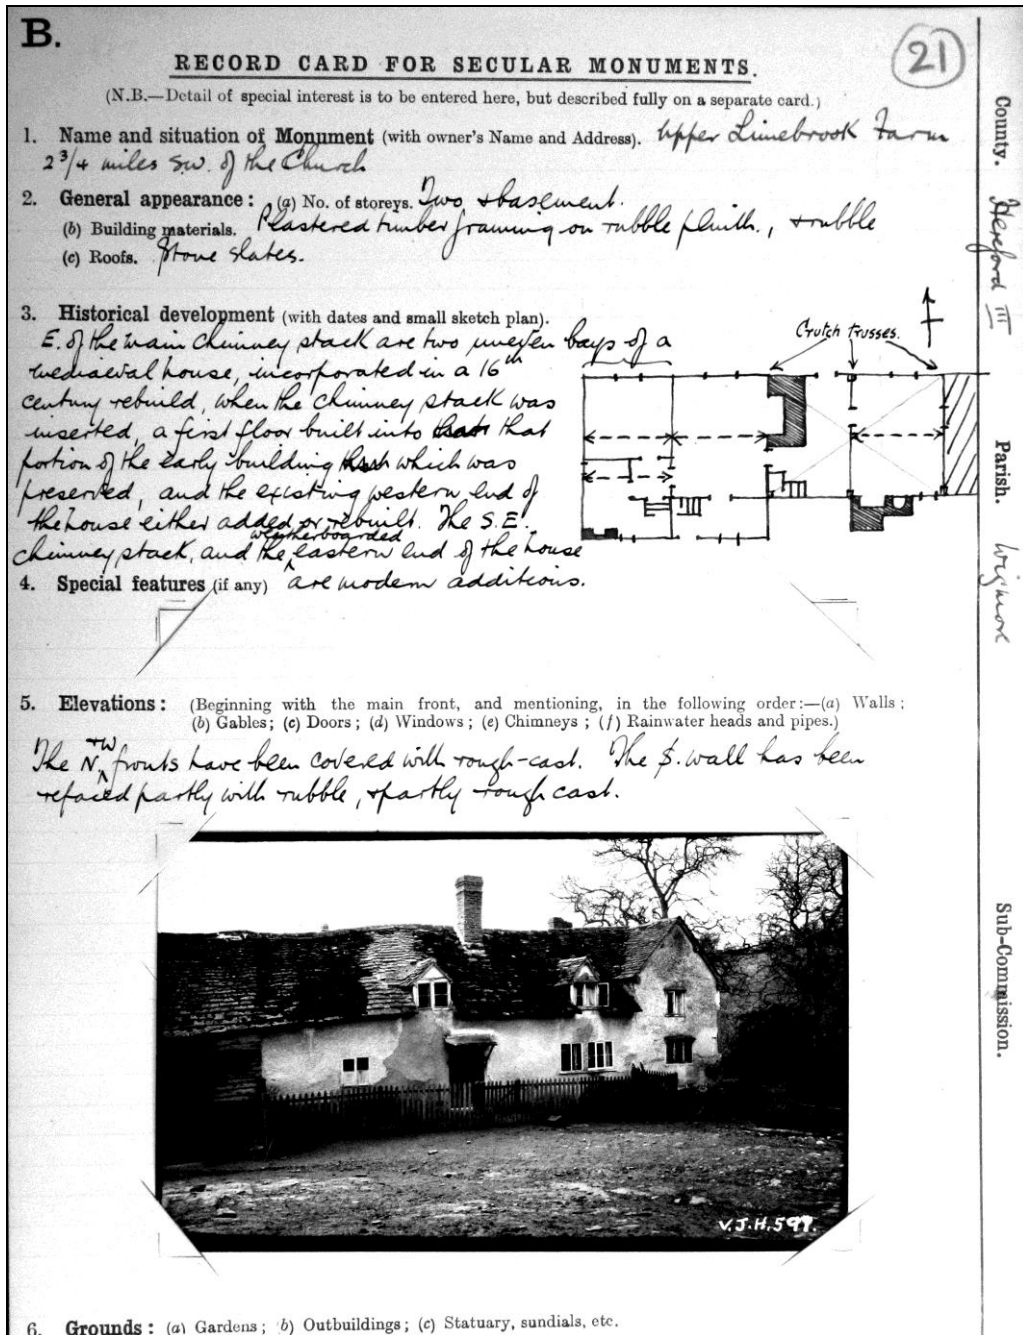 B.
21
RECORD CARD FOR SECULAR MONUMENTS.
(N.B.—Detail of special interest is to be entered here, but described fully on a separate card.)
1. Name and situation of Monument (with owner's Name and Address). Upper Limebrook Farm
2 3/4 miles S.W. of the Church
2. General appearance: (a) No. of storeys. Two & basement.
(b) Building materials. Plastered timber framing on rubble plinth., & rubble
(c) Roofs. Stone slates.
3. Historical development (with dates and small sketch plan).
E. of the main chimney stack are two uneven bays of a
mediaeval house, incorporated in a 16th
century rebuild, when the chimney stack was
inserted, a first floor built into that
portion of the early building which was
preserved, and the existing western end of
the house either added or rebuilt. The S.E.
chimney stack, and the weatherboarded eastern end of the house
4. Special features (if any) are modern additions.
Crutch trusses.
5. Elevations: (Beginning with the main front, and mentioning, in the following order:—(a) Walls;
(b) Gables; (c) Doors; (d) Windows; (e) Chimneys; (f) Rainwater heads and pipes.)
The N. & W fronts have been covered with rough-cast. The S. wall has been
refaced partly with rubble, & partly rough cast.
V.J.H. 597.
6. Grounds: (a) Gardens; (b) Outbuildings; (c) Statuary, sundials, etc.
County. Hereford III
Parish. Wigmore
Sub-Commission.